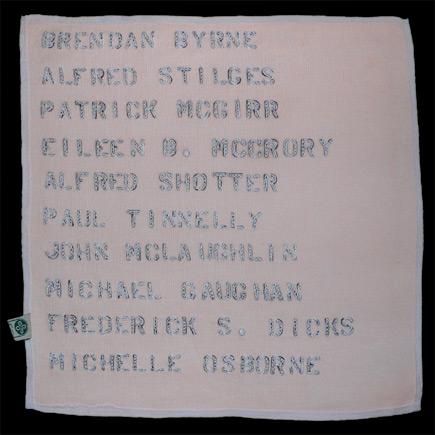 BRENDAN BYRNE
ALFRED STILGES
PATRICK MCGIRR
EILEEN B. MCCRORY
ALFRED SHOTTER
PAUL TINNELLY
JOHN MCLAUGHLIN
MICHAEL GAUGHAN
FREDERICK S. DICKS
MICHELLE OSBORNE